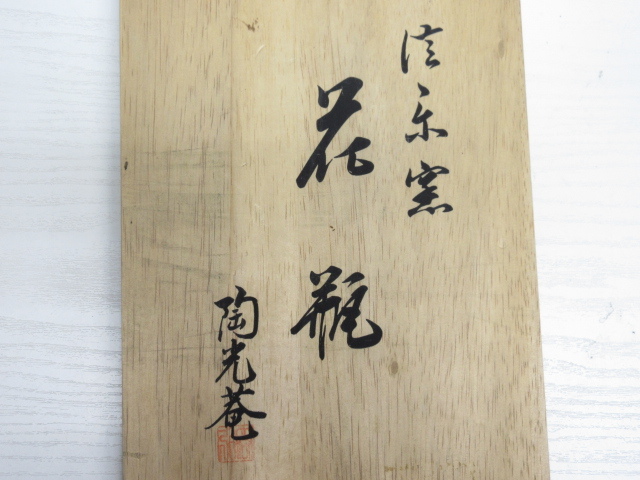 信楽窯
花瓶
陶光菴